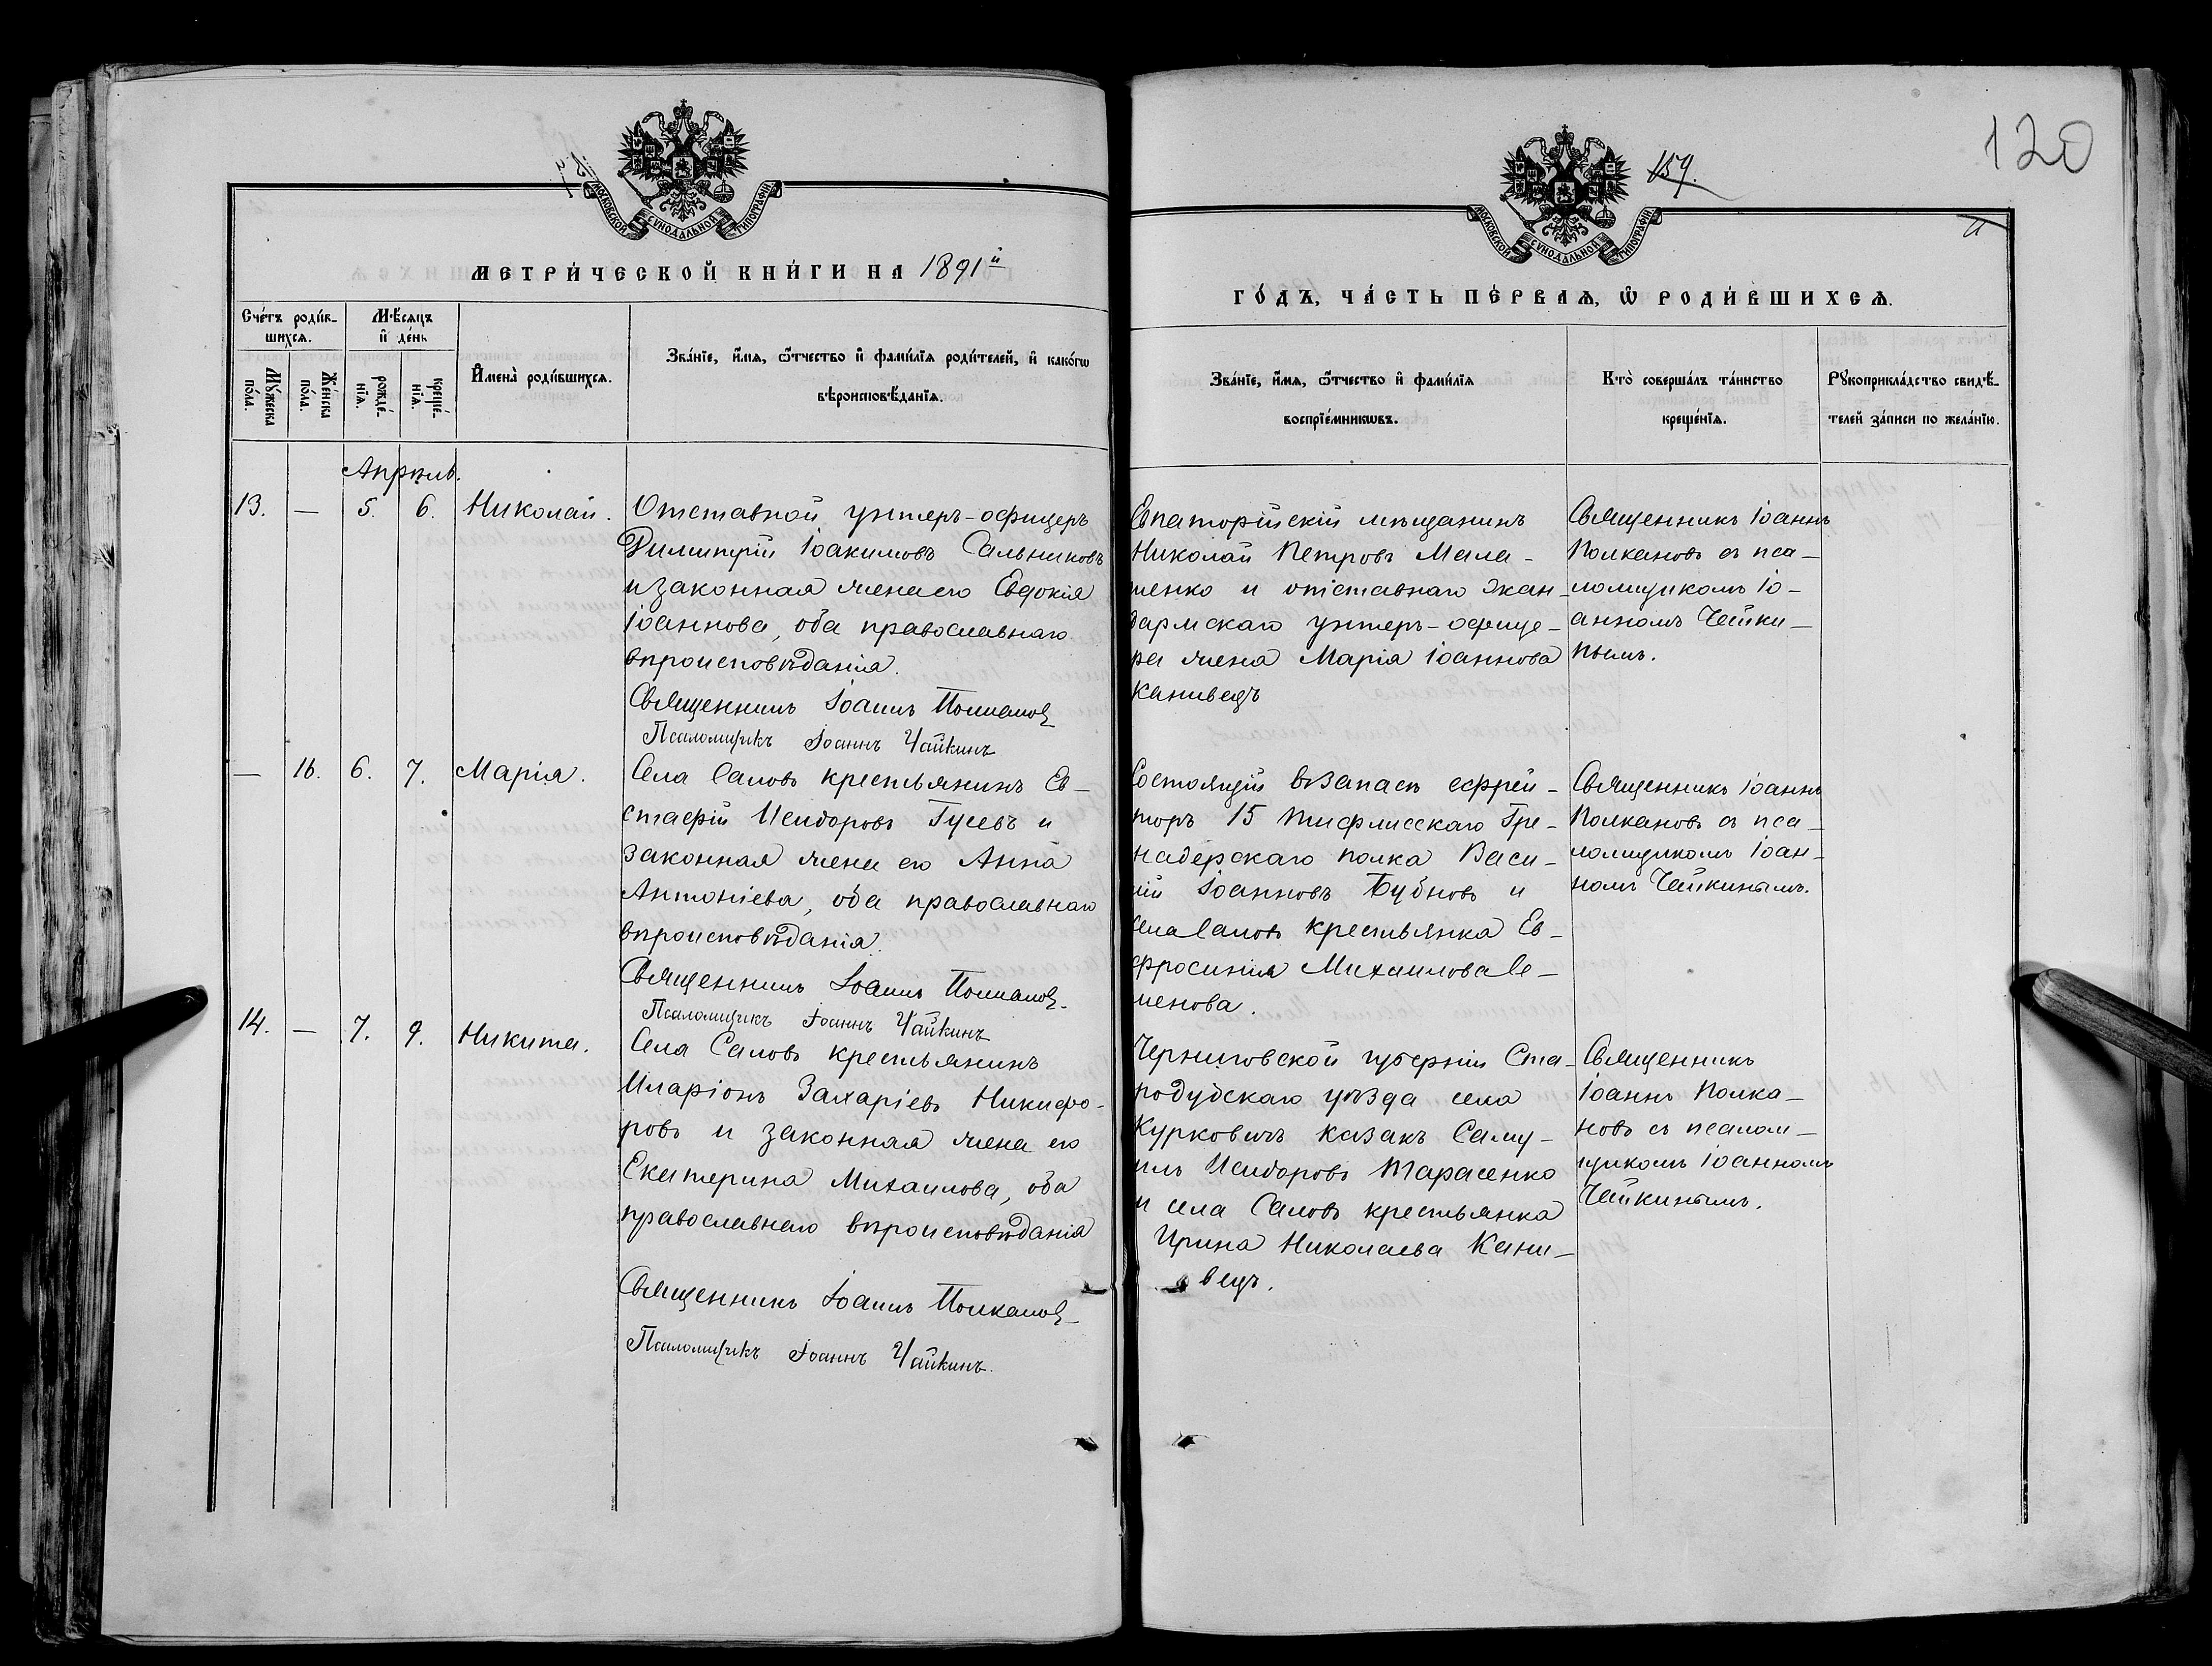 МОСКОВСКОЙ СѴНОДАЛЬНОЙ ТИПОГРАФІИ
МЕТРИ́ЧЕСКОЙ КНИ́ГИ НА 1891й
Сче́тъ роди́в-
шихсѧ.
Мꙋ́жеска по́ла.
Же́нска по́ла.
Мѣ́сѧцъ
и҆ де́нь
рожде́-
нїѧ.
креще́-
нїѧ.
И҆мена̀ роди́вшихсѧ.
Зва́нїе, и҆́мѧ, ѻ҆́тчество и҆ фами́лїѧ роди́телей, и҆ како́гѡ
вѣроисповѣ́данїѧ.
Апрѣль.
13. — 5. 6. Николай.
Отставной унтеръ-офицеръ
Димитрій Іоакимовъ Сальниковъ
и законная жена его Евдокія
Іоаннова, оба православнаго
вѣроисповѣданія.
Священникъ Іоаннъ Полкановъ
Псаломщикъ Іоаннъ Чайкинъ
— 16. 6. 7. Марія.
Села Саловъ крестьянинъ Ев-
стафій Исидоровъ Гусевъ и
законная жена его Анна
Антоніева, оба православнаго
вѣроисповѣданія.
Священникъ Іоаннъ Полкановъ
Псаломщикъ Іоаннъ Чайкинъ
14. — 7. 9. Никита.
Села Саловъ крестьянинъ
Иларіонъ Захаріевъ Никифо-
ровъ и законная жена его
Екатерина Михаилова, оба
православнаго вѣроисповѣданія
Священникъ Іоаннъ Полкановъ
Псаломщикъ Іоаннъ Чайкинъ.
120
159.
МОСКОВСКОЙ СѴНОДАЛЬНОЙ ТИПОГРАФІИ
ГО́ДЪ, ЧА́СТЬ ПЕ́РВАѦ, Ѡ҆ РОДИ́ВШИХСѦ.
Зва́нїе, и҆́мѧ, ѻ҆́тчество и҆ фами́лїѧ
воспрїе́мникѡвъ.
Кто̀ соверша́лъ та́инство
креще́нїѧ.
Рꙋкоприкла́дство свидѣ́-
телей за́писи по жела́нїю.
Евпаторійскій мѣщанинъ
Николай Петровъ Мала-
шенко и отставнаго жан-
дармскаго унтеръ-офице-
ра жена Марія Іоаннова
Каниведъ
Священникъ Іоаннъ
Полкановъ съ пса-
ломщикомъ Іо-
анномъ Чайки-
нымъ.
Состоящій въ запасѣ ефрей-
торъ 15 Тифлисскаго Гре-
надерскаго полка Васи-
лій Іоанновъ Бубновъ и
села Саловъ крестьянка Ев-
фросинія Михаилова Се-
менова.
Священникъ Іоаннъ
Полкановъ съ пса-
ломщикомъ Іоан-
номъ Чайкинымъ.
Черниговской губерніи Ста-
родубскаго уѣзда села
Курковичъ казакъ Саму-
илъ Исидоровъ Тарасенко
и села Саловъ крестьянка
Ирина Николаева Кани-
ведъ.
Священникъ
Іоаннъ Полка-
новъ съ псалом-
щикомъ Іоанномъ
Чайкинымъ.